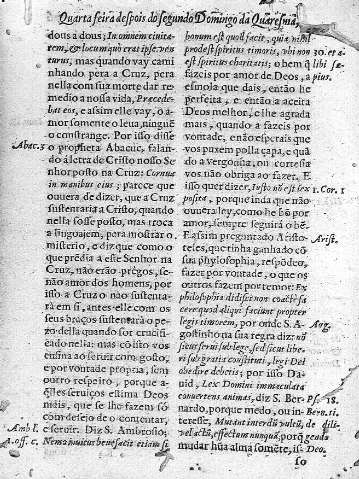 Quarta feira despois do segundo Domingo da Quaresma,
dous a dous; In omnem civita-
tem, & locum quò erat ipse ven-
turus, mas quando vay cami
nhando pera a Cruz, pera
nella com sua morte dar re-
medio a nossa vida, Præcede-
bat eos, e assim elle vay, o a-
mor somente o leva, ninguẽ
o constrange. Por isso disse
Abac. 3
o propheta Abacuc, falan-
do à letra de Christo nosso Se
nhor posto na Cruz: Cornua
in manibus eius; parece que
ouvera de dizer, que a Cruz
sustentaria a Cristo, quando
nella fosse posto, mas troca
a linguajem, pera mostrar o
misterio, e diz que como o
prèdia a este Senhor na
Cruz, não erão prègos, se-
não amor dos homens, por
isso a Cruz o não sustenta-
rà em si, antes elle com os
seus braços sustentarà o pe-
zo della quando for crucifi-
cado nella: mas cõ isto vos
ensina ao servir com gosto,
e por vontade propria, sem
outro respeito, porque a-
quelles serviços estima Deos
mais, que se lhe fazem só
com desejo de o contentar,
Amb l.
e servir. Diz S. Ambrosio;
1. off. c.
Nemo invitus benefacit etiam si
bonum est quod facit, quia nihil
prodest spiritus timoris, ubi non
est spiritus charitatis; o bem q̃ libi
fazeis por amor de Deos, a
esmola que dais, então he
perfeita, e então a aceita
Deos melhor, e lhe agrada
mais, quando a fazeis por
vontade, então esperais que
vos puxem polla capa, e quã
do a vergonha, ou cortesia
vos não obriga ao fazer. E
isso quer dizer, Iusto nõ est lex
1. Cor. 1
posita, porque inda que não
ouvera ley, como he bõ por
amor, sempre seguirà o bẽ.
E assim pregando Aristo-
Arist.
teles, que tinha ganhado cõ
sua phylosophia, respõdeo,
fazer por vontade, o que os
outros fazem por temor: Ex
philosophia didici
legis timorem, por onde S. A-
Aug.
gostinho na sua regra diz: nõ
sicut servi sub lege, sed sicut libe-
ri sub gratia constituti, legi Dei
obedire debetis; por isso Da-
uid, Lex Domini immaculata
Ps. 18.
convertens animas, diz S. Ber-
nardo, porque medo, ou in-
Bern. ti.
teresse, Mutant interdũ vultũ, de dili-
vel actũ, affectum nunquã, porq̃
mudar hũa alma somẽte, is-
Deo.
so